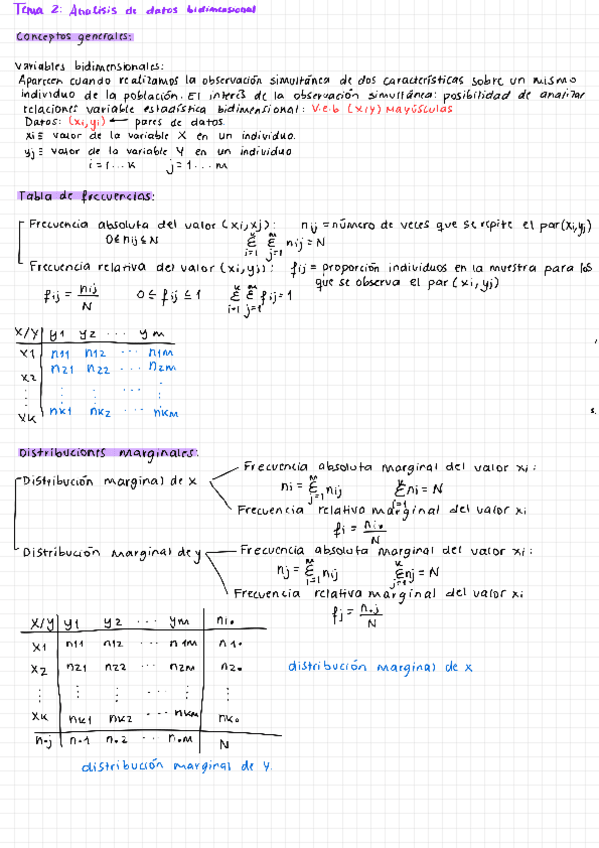 Tema 2: Analisis de datos bidimensional
Conceptos generales:
Variables bidimensionales:
Aparecen cuando realizamos la observación simultánea de dos características sobre un mismo
individuo de la población. El interés de la observación simultánea: posibilidad de analizar
relaciones variable estadística bidimensional: V.e.b (X,Y) MAYÚSCULAS
Datos: (xi, yi) ← pares de datos.
xi ≡ valor de la variable X en un individuo.
yj ≡ valor de la variable Y en un individuo
i = 1 ... k j = 1 ... m
Tabla de frecuencias:
Frecuencia absoluta del valor (xi, xj): nij = número de veces que se repite el par (xi, yj)
0 ≤ nij ≤ N Σ(i=1, k) Σ(j=1, m) nij = N
Frecuencia relativa del valor (xi, yj): fij = proporción individuos en la muestra para los
que se observa el par (xi, yj)
fij = nij/N 0 ≤ fij ≤ 1 Σ(i=1, k) Σ(j=1, m) fij = 1
X/Y y1 y2 ... ym
x1 n11 n12 ... n1m
x2 n21 n22 ... n2m
⋮ ⋮ ⋮ ⋱ ⋮
xk nk1 nk2 ... nkm
Distribuciones marginales:
Distribución marginal de x
Frecuencia absoluta marginal del valor xi:
ni = Σ(j=1, m) nij Σ(i=1, k) ni = N
Frecuencia relativa marginal del valor xi
fi = ni•/N
Distribución marginal de y
Frecuencia absoluta marginal del valor xi:
nj = Σ(i=1, m) nij Σ(j=1, k) nj = N
Frecuencia relativa marginal del valor xi
fj = n•j/N
X/Y y1 y2 ... ym ni•
x1 n11 n12 ... n1m n1•
x2 n21 n22 ... n2m n2•
⋮ ⋮ ⋮ ⋮ ⋮
xk nk1 nk2 ... nkm nk•
n•j n•1 n•2 ... n•m N
distribución marginal de x
distribución marginal de y.